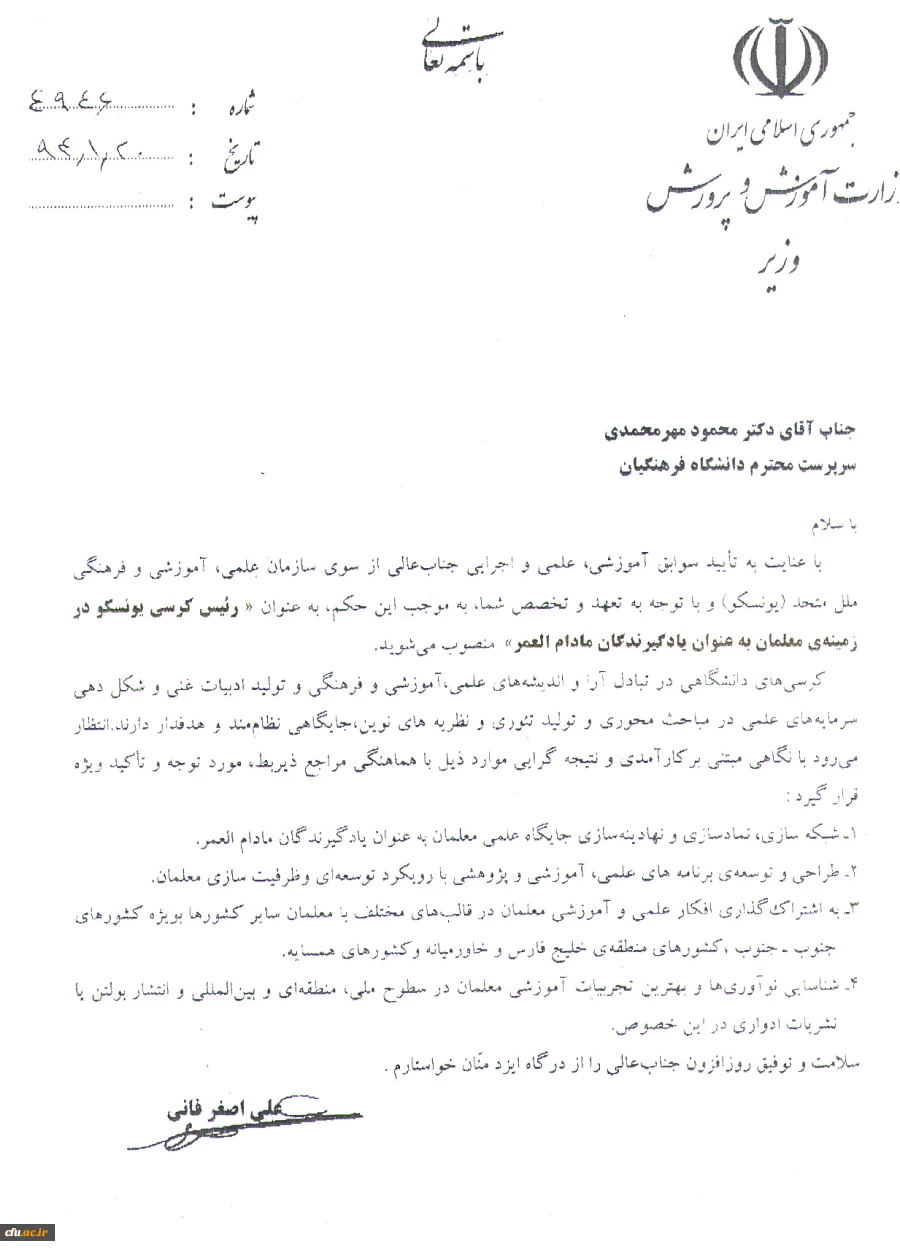 باسمه تعالی
جمهوری اسلامی ایران
وزارت آموزش و پرورش
وزیر
شماره : ٤٩٤٦
تاریخ : ٩٤/١/٢٠
پیوست :
جناب آقای دکتر محمود مهرمحمدی
سرپرست محترم دانشگاه فرهنگیان
با سلام
با عنایت به تأیید سوابق آموزشی، علمی و اجرایی جناب‌عالی از سوی سازمان علمی، آموزشی و فرهنگی
ملل متحد (یونسکو) و با توجه به تعهد و تخصص شما، به موجب این حکم، به عنوان « رئیس کرسی یونسکو در
زمینه‌ی معلمان به عنوان یادگیرندگان مادام العمر» منصوب می‌شوید.
کرسی‌های دانشگاهی در تبادل آرا و اندیشه‌های علمی،آموزشی و فرهنگی و تولید ادبیات غنی و شکل دهی
سرمایه‌های علمی در مباحث محوری و تولید تئوری و نظریه های نوین،جایگاهی نظام‌مند و هدفدار دارند.انتظار
می‌رود با نگاهی مبتنی برکارآمدی و نتیجه گرایی موارد ذیل با هماهنگی مراجع ذیربط، مورد توجه و تأکید ویژه
قرار گیرد :
۱ـ شبکه سازی، نمادسازی و نهادینه‌سازی جایگاه علمی معلمان به عنوان یادگیرندگان مادام العمر.
۲ـ طراحی و توسعه‌ی برنامه های علمی، آموزشی و پژوهشی با رویکرد توسعه‌ای وظرفیت سازی معلمان.
۳ـ به اشتراک‌گذاری افکار علمی و آموزشی معلمان در قالب‌های مختلف با معلمان سایر کشورها بویژه کشورهای
جنوب ـ جنوب ،کشورهای منطقه‌ی خلیج فارس و خاورمیانه وکشورهای همسایه.
۴ـ شناسایی نوآوری‌ها و بهترین تجربیات آموزشی معلمان در سطوح ملی، منطقه‌ای و بین‌المللی و انتشار بولتن یا
نشریات ادواری در این خصوص.
سلامت و توفیق روزافزون جناب‌عالی را از درگاه ایزد منّان خواستارم .
علی اصغر فانی
cfu.ac.ir